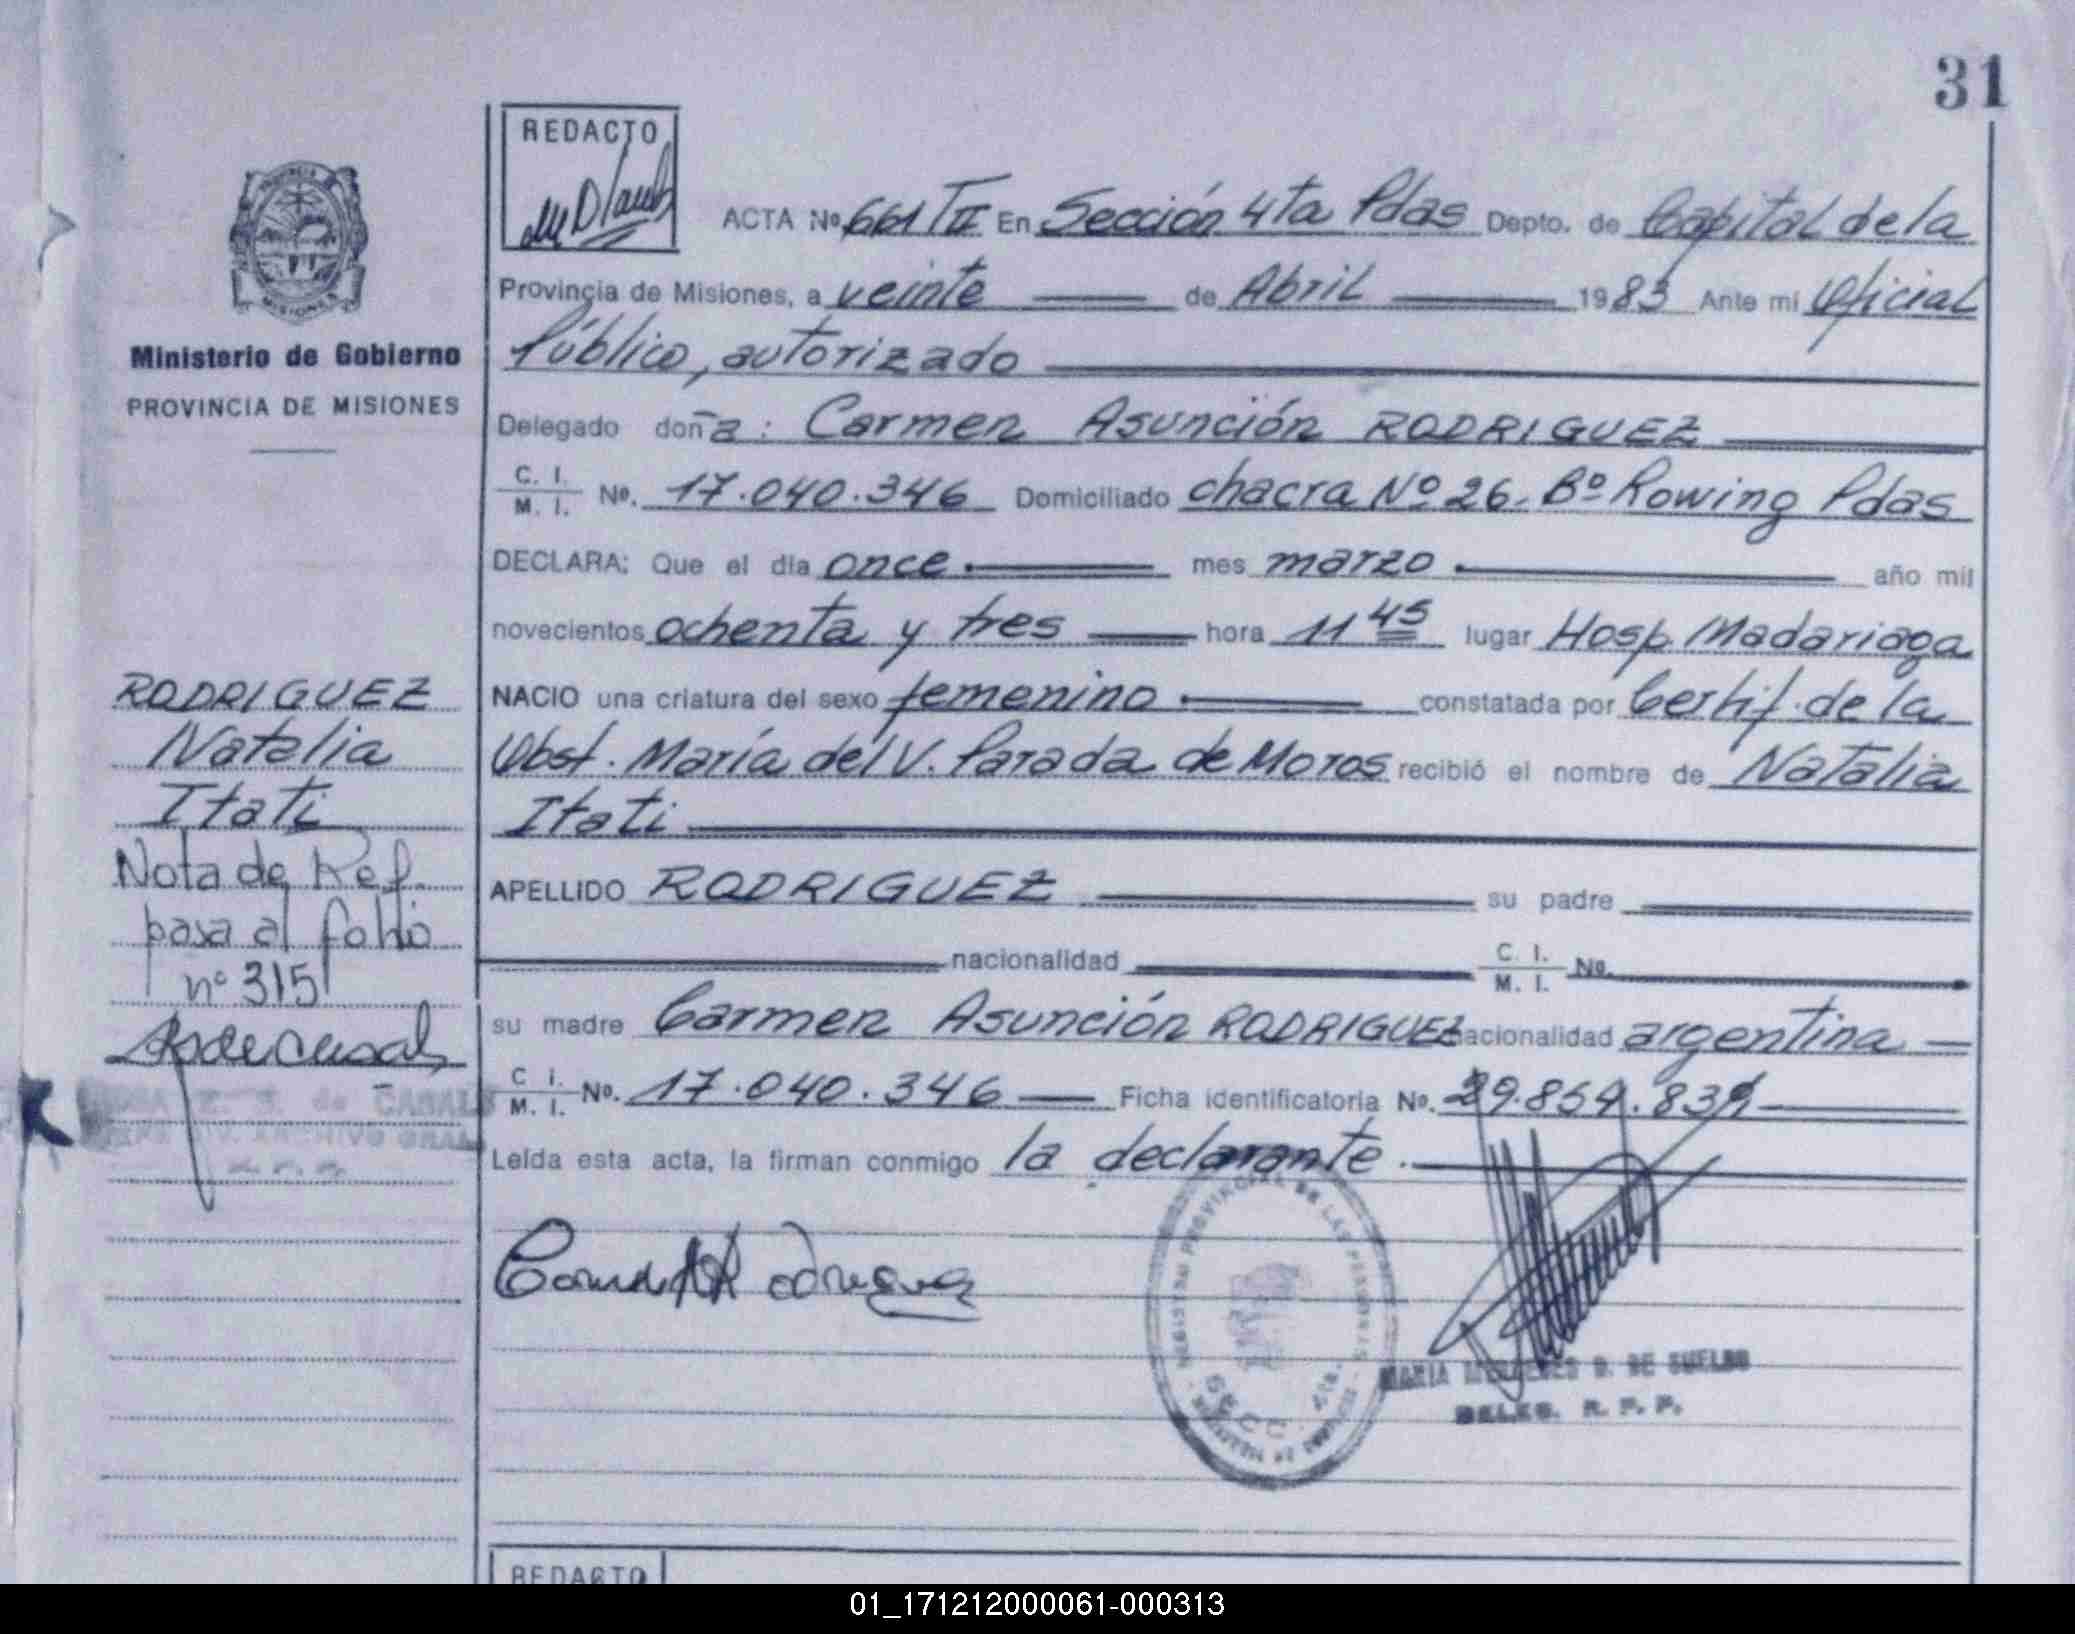 31
REDACTO
ACTA Nº 661 TII En Sección 4ta Pdas Depto. de Capital de la
Provincia de Misiones, a veinte de Abril 1983 Ante mi Oficial
Público, autorizado
Ministerio de Gobierno
PROVINCIA DE MISIONES
Delegado doña: Carmen Asunción RODRIGUEZ
C. I. / M. I. Nº. 17.040.346 Domiciliado chacra Nº 26. Bº Rowing Pdas
DECLARA: Que el dia once mes marzo año mil
novecientos ochenta y tres hora 11 45 lugar Hosp. Madariaga
NACIO una criatura del sexo femenino constatada por Certif. de la
Obst. María del V. Parada de Moros recibió el nombre de Natalia
Itati
APELLIDO RODRIGUEZ su padre
nacionalidad C. I. / M. I. Nº.
su madre Carmen Asunción RODRIGUEZ nacionalidad argentina
C. I. / M. I. Nº. 17.040.346 Ficha identificatoria Nº.
Leída esta acta, la firman conmigo la declarante.
RODRIGUEZ
Natalia
Itati
Nota de Ref.
pasa al folio
nº 315
de CASALS
DIV. ARCHIVO GRAL
REGISTRO PROVINCIAL DE LAS PERSONAS
SECC. 4ta.
MARIA D. DE SUELDO
DELEG. R. P. P.
REDACTO
01_171212000061-000313